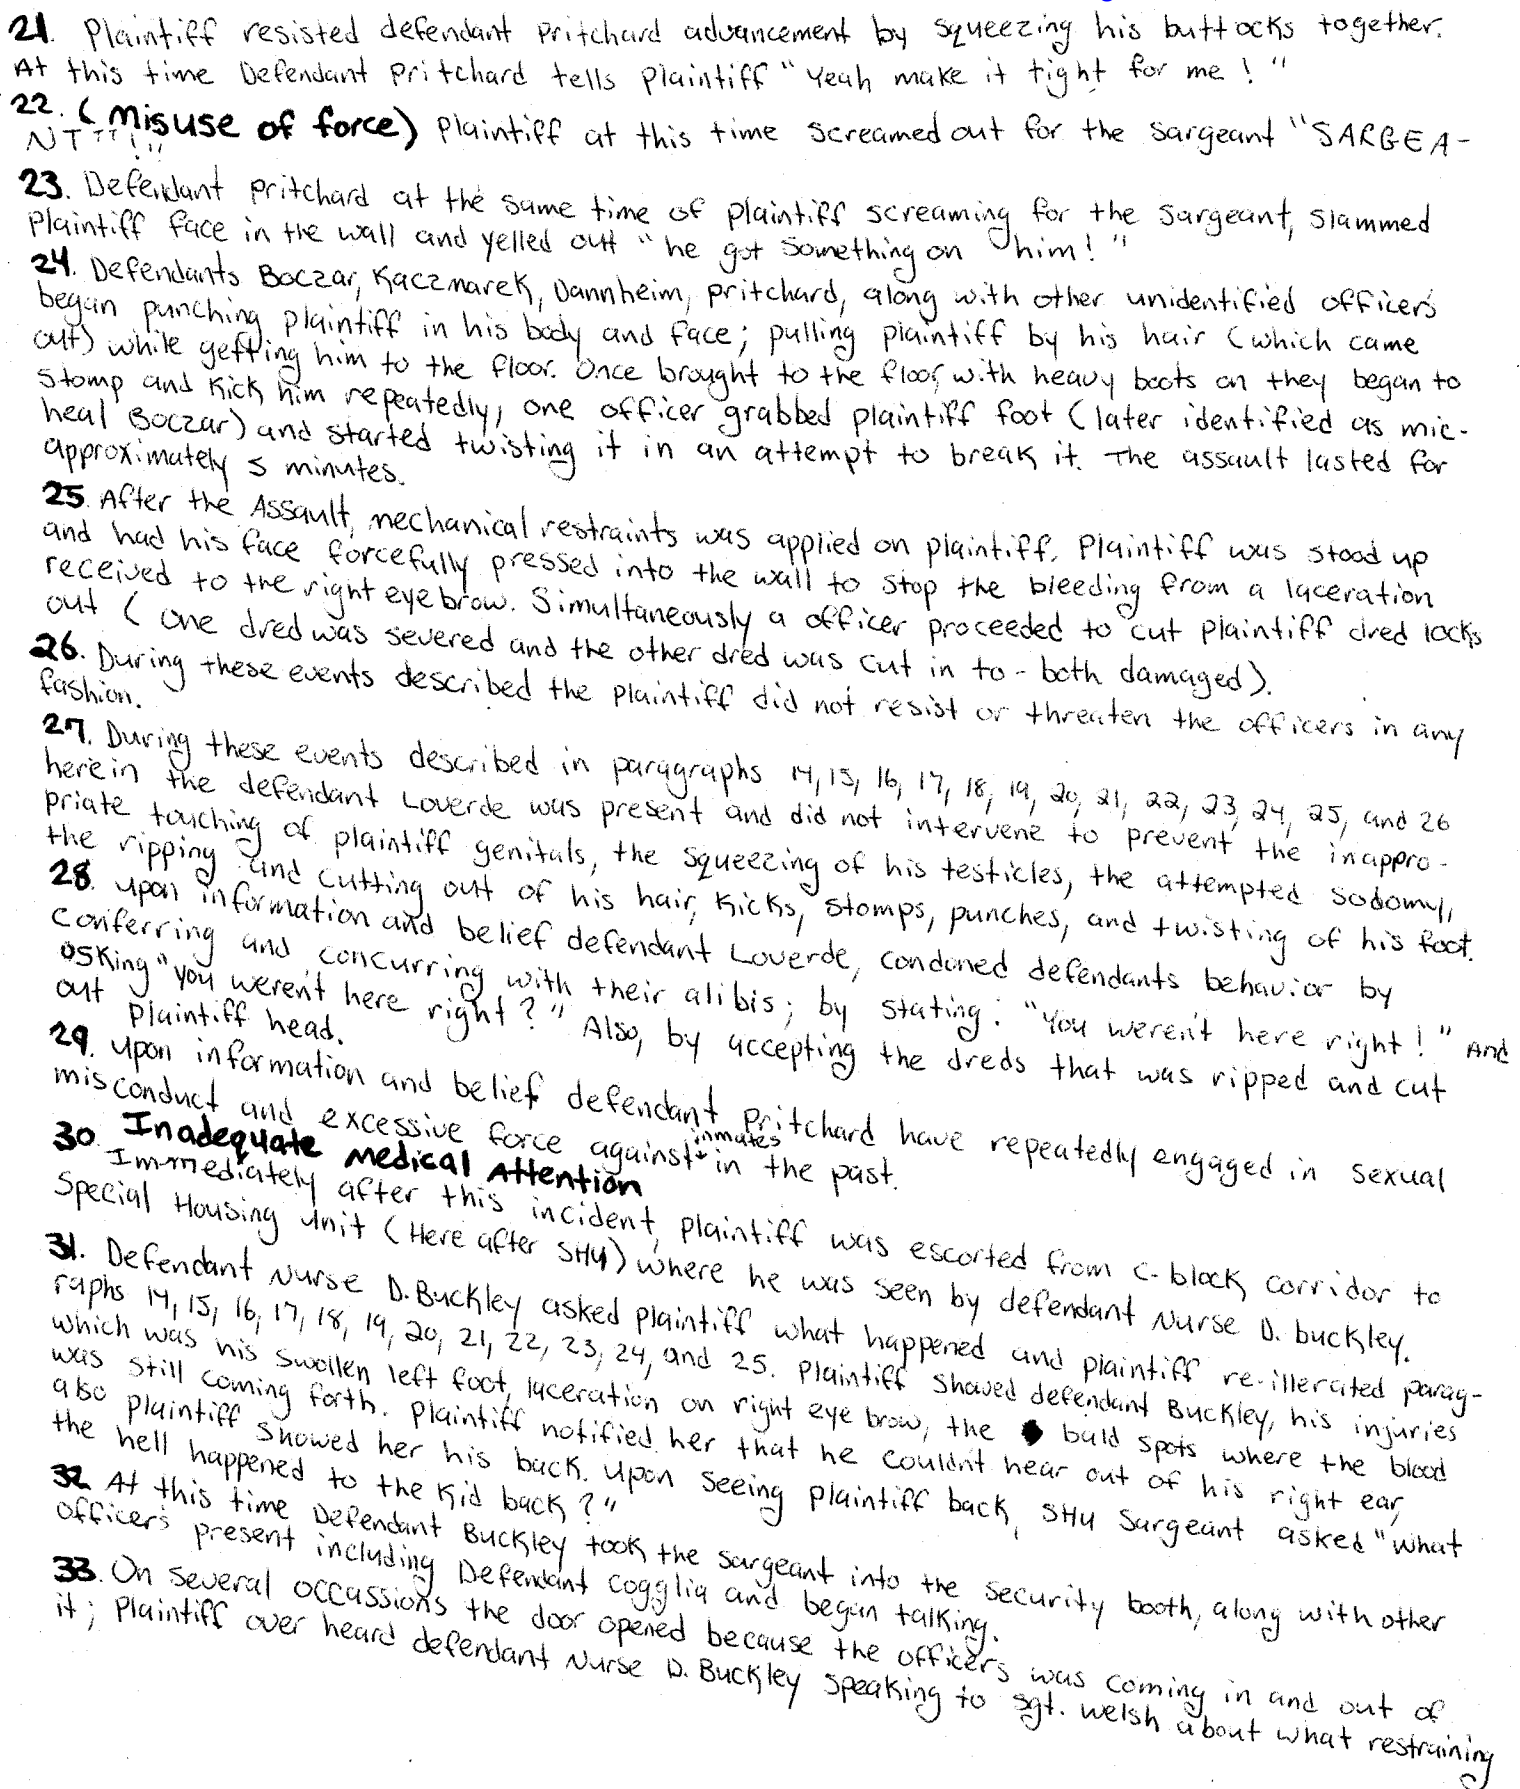 21. Plaintiff resisted defendant Pritchard advancement by squeezing his buttocks together.
At this time Defendant Pritchard tells Plaintiff "Yeah make it tight for me!"
22. (Misuse of force) Plaintiff at this time screamed out for the sargeant "SARGEA-
NT!!!"
23. Defendant Pritchard at the same time of plaintiff screaming for the sargeant, slammed
Plaintiff face in the wall and yelled out "he got something on him!"
24. Defendants Boczar, Kaczmarek, Dannheim, pritchard, along with other unidentified officers
began punching plaintiff in his body and face; pulling plaintiff by his hair (which came
out) while getting him to the floor. Once brought to the floor, with heavy boots on they began to
stomp and kick him repeatedly, one officer grabbed plaintiff foot (later identified as mic-
heal Boczar) and started twisting it in an attempt to break it. The assault lasted for
approximately 5 minutes.
25. After the Assault, mechanical restraints was applied on plaintiff. Plaintiff was stood up
and had his face forcefully pressed into the wall to stop the bleeding from a laceration
received to the right eyebrow. Simultaneously a officer proceeded to cut plaintiff dred locks
out (one dred was severed and the other dred was cut in to - both damaged).
26. During these events described the plaintiff did not resist or threaten the officers in any
fashion.
27. During these events described in paragraphs 14, 15, 16, 17, 18, 19, 20, 21, 22, 23, 24, 25, and 26
herein the defendant Loverde was present and did not intervene to prevent the inappro-
priate touching of plaintiff genitals, the squeezing of his testicles, the attempted sodomy,
the ripping and cutting out of his hair, kicks, stomps, punches, and twisting of his foot.
28. upon information and belief defendant Loverde, condoned defendants behavior by
conferring and concurring with their alibis; by stating: "You weren't here right!" And
asking "you weren't here right?" Also, by accepting the dreds that was ripped and cut
out Plaintiff head.
29. upon information and belief defendant Pritchard have repeatedly engaged in sexual
misconduct and excessive force against inmates in the past.
30. Inadequate Medical Attention
Immediately after this incident, plaintiff was escorted from C-block corridor to
Special Housing Unit (Here after SHU) where he was seen by defendant Nurse D. buckley.
31. Defendant Nurse D. Buckley asked plaintiff what happened and plaintiff re-illerated parag-
raphs 14, 15, 16, 17, 18, 19, 20, 21, 22, 23, 24, and 25. Plaintiff showed defendant Buckley, his injuries
which was his swollen left foot, laceration on right eye brow, the bald spots where the blood
was still coming forth. Plaintiff notified her that he couldn't hear out of his right ear,
also plaintiff showed her his back. Upon seeing plaintiff back, SHU Sargeant asked "what
the hell happened to the kid back?"
32 At this time Defendant Buckley took the sargeant into the security booth, along with other
officers present including Defendant Cogglia and began talking.
33. On several occassions the door opened because the officers was coming in and out of
it; Plaintiff over heard defendant Nurse D. Buckley speaking to sgt. welsh about what restraining